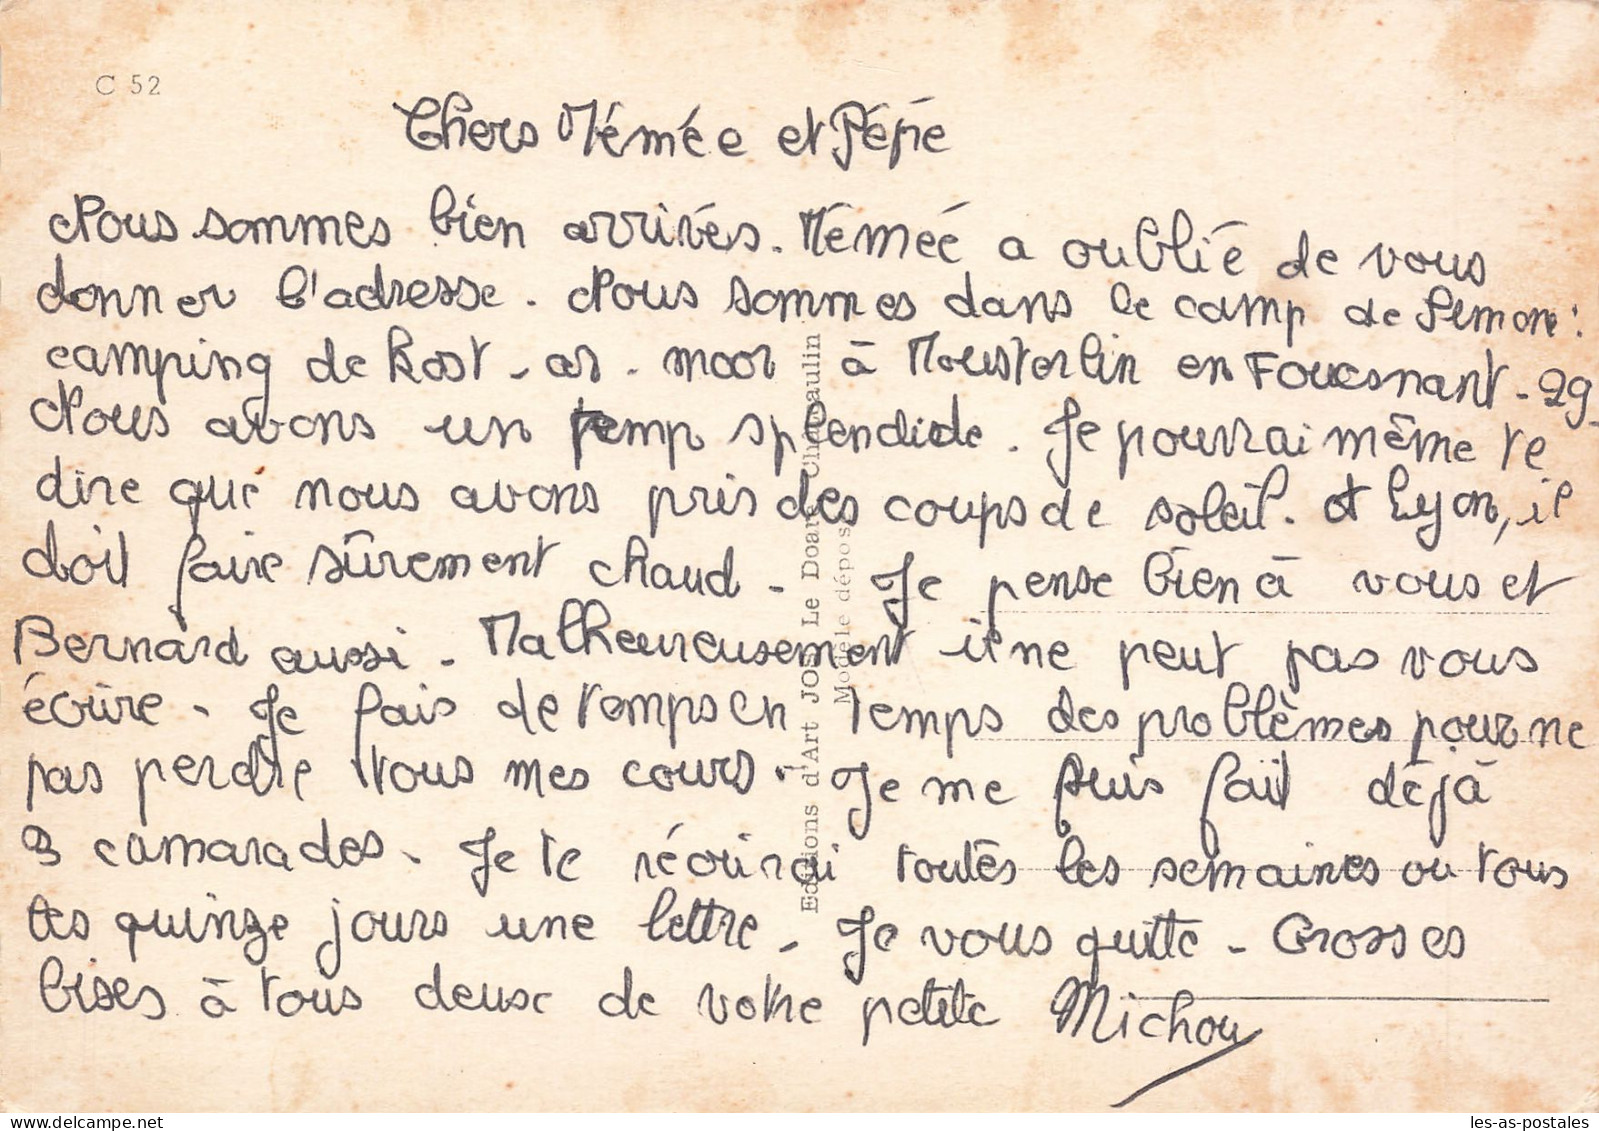 C 52
Chers Mémée et Pépé
Nous sommes bien arrivés. Mémée a oublié de vous
donner l'adresse. Nous sommes dans le camp de
camping de Kost-ar-moor à Mousterlin en Fouesnant - 29_
Nous avons un temp splendide. Je pourrai même te
dire que nous avons pris des coups de soleil. A Lyon, il
doit faire sûrement chaud - Je pense bien à vous et
Bernard aussi - Malheureusement il ne peut pas vous
écrire - Je fais de temps en temps des problèmes pour ne
pas perdre tous mes cours. Je me suis fait déjà
3 camarades. Je te récrirai toutes les semaines ou tous
les quinze jours une lettre - Je vous quitte - Grosses
bises à tous deux de votre petite Michou
Editions d'Art JOS Le Doaré Châteaulin
Modèle déposé
les-as-postales